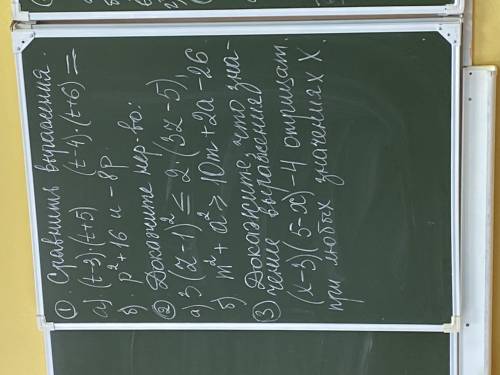 ① Сравнить выражения.
а) (t-3)·(t+5) (t-4)·(t+6) =
б. p²+16 и -8p
② Докажите нер-во:
а) 3(z-1)² ≤ 2·(3z-5),
б) m²+a² ≥ 10m+2a-26
③ Докажите, что зна-
чение выражения
(x-3)(5-x)-4 отрицат.
при любых значениях x.